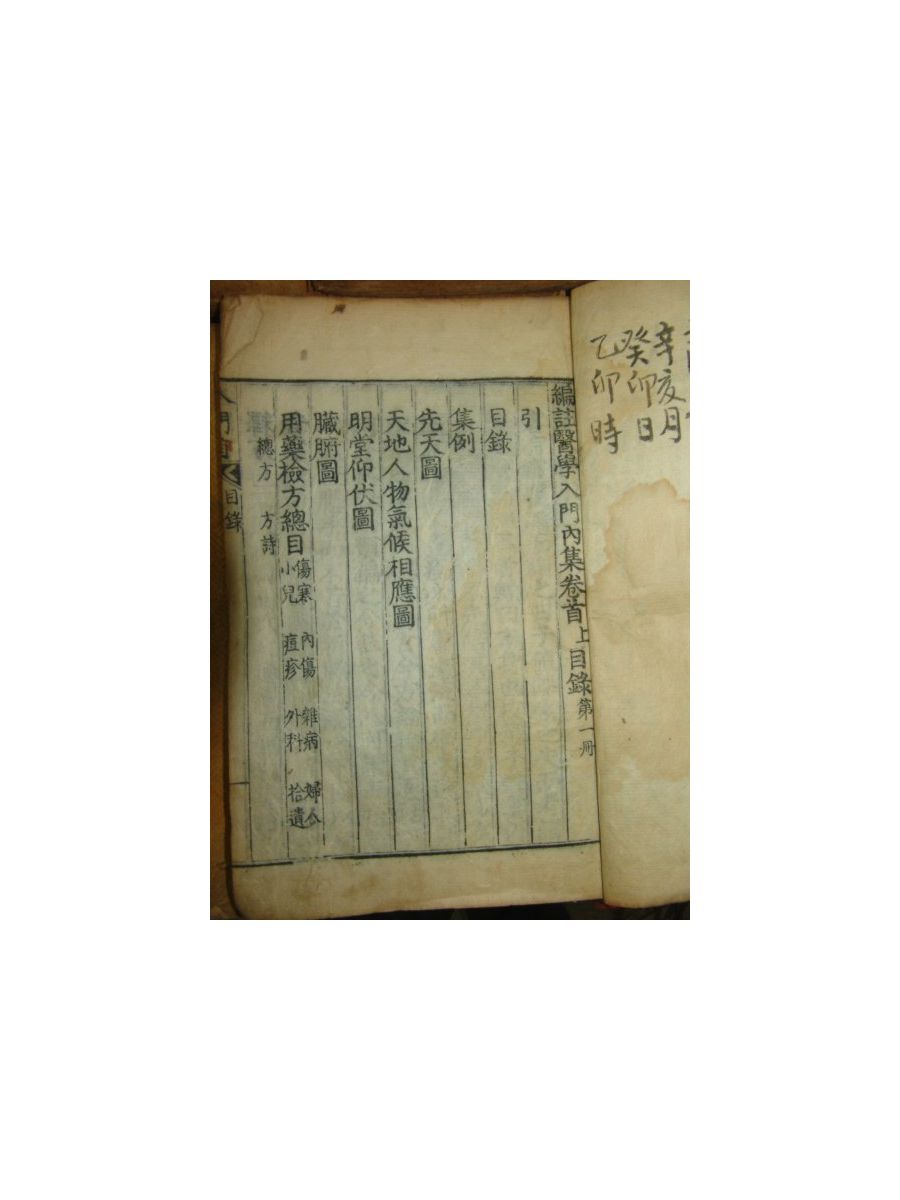 辛亥月
癸卯日
乙卯時
編註醫學入門內集卷首上目錄第一册
引
目錄
集例
先天圖
天地人物氣候相應圖
明堂仰伏圖
臟腑圖
用藥檢方總目 傷寒 內傷 雜病 婦人
小兒 痘疹 外科 拾遺
總方 方詩
入門 目錄